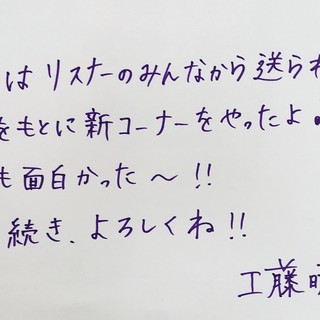 はリスナーのみんなから送ら
をもとに新コーナーをやったよ。
も面白かった〜!!
続き、よろしくね!!
工藤